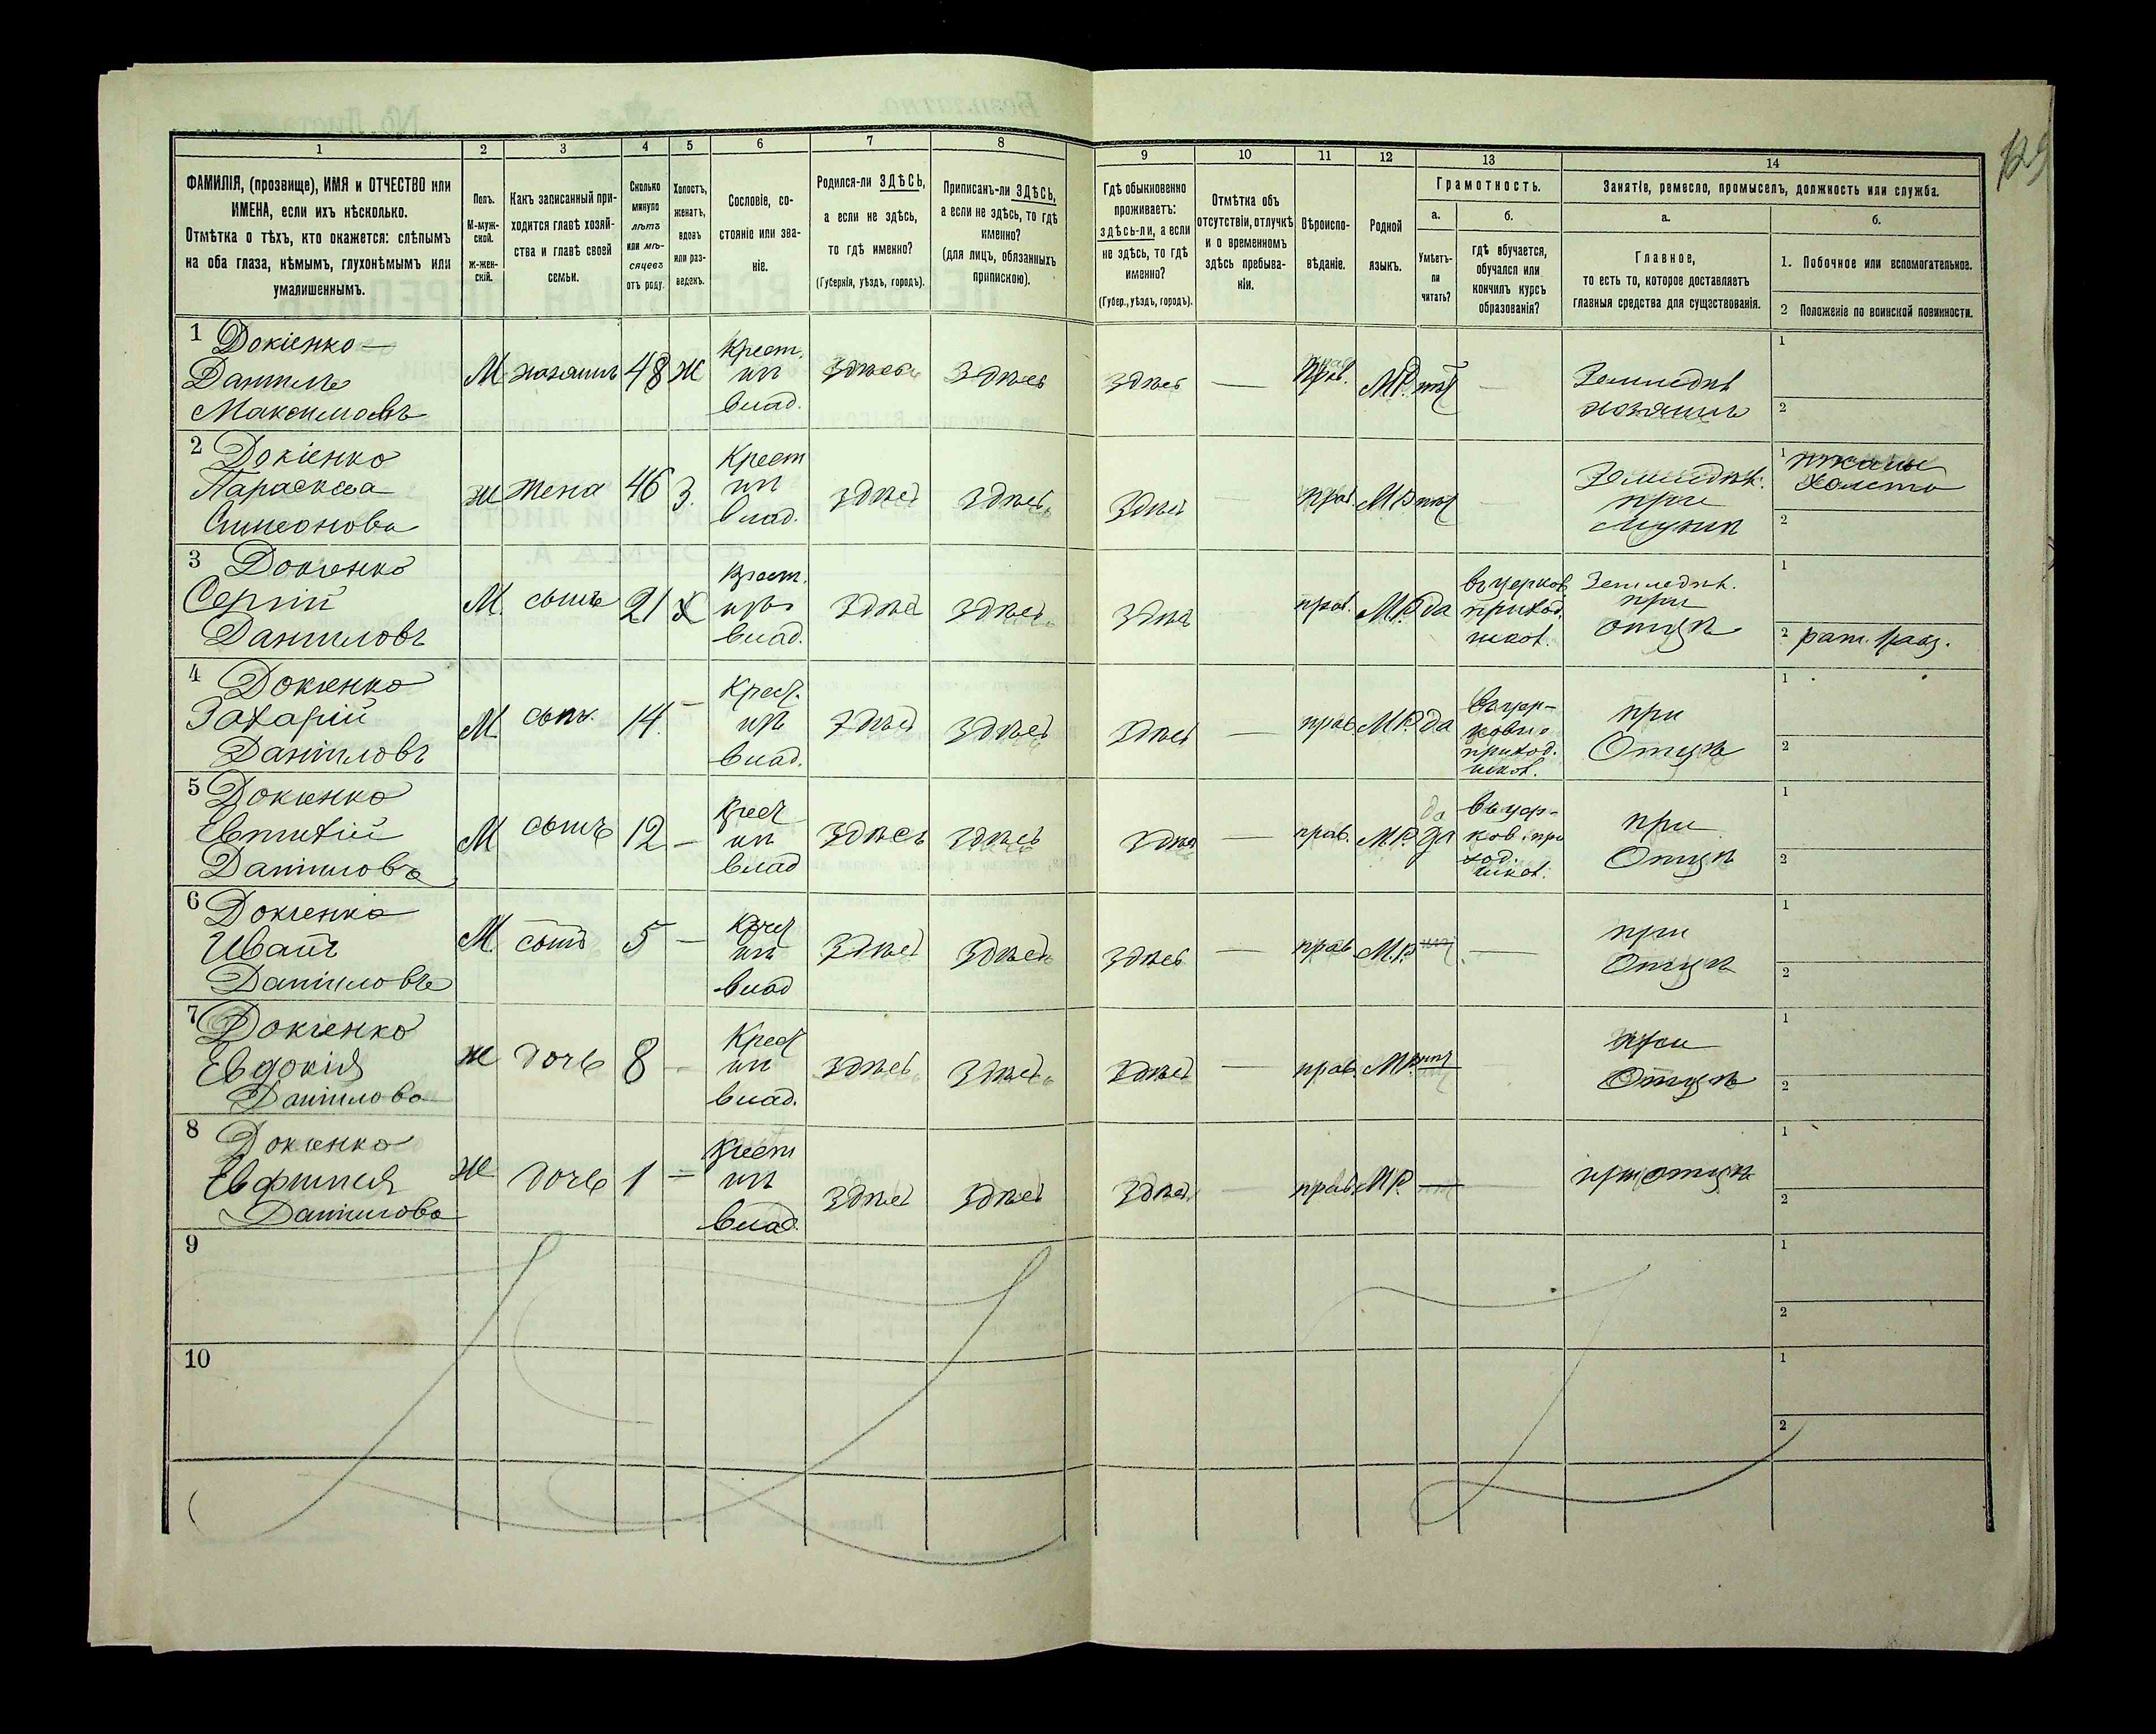 129
1 2 3 4 5 6 7 8 9 10 11 12 13 14
ФАМИЛІЯ, (прозвище), ИМЯ и ОТЧЕСТВО или
ИМЕНА, если ихъ нѣсколько.
Отмѣтка о тѣхъ, кто окажется: слѣпымъ
на оба глаза, нѣмымъ, глухонѣмымъ или
умалишеннымъ.
Полъ.
М-муж-
ской.
ж-жен-
скій.
Какъ записанный при-
ходится главѣ хозяй-
ства и главѣ своей
семьи.
Сколько
минуло
лѣтъ
или мѣ-
сяцевъ
отъ роду.
Холостъ,
женатъ,
вдовъ
или раз-
веденъ.
Сословіе, со-
стояніе или зва-
ніе.
Родился-ли ЗДѢСЬ,
а если не здѣсь,
то гдѣ именно?
(Губернія, уѣздъ, городъ).
Приписанъ-ли ЗДѢСЬ,
а если не здѣсь, то гдѣ
именно?
(для лицъ, обязанныхъ
припискою).
Гдѣ обыкновенно
проживаетъ:
здѣсь-ли, а если
не здѣсь, то гдѣ
именно?
(Губер., уѣздъ, городъ).
Отмѣтка объ
отсутствіи, отлучкѣ
и о временномъ
здѣсь пребыва-
ніи.
Вѣроиспо-
вѣданіе.
Родной
языкъ.
Грамотность.
а.
Умѣетъ-
ли
читать?
б.
гдѣ обучается,
обучался или
кончилъ курсъ
образованія?
Занятіе, ремесло, промыселъ, должность или служба.
а.
Главное,
то есть то, которое доставляетъ
главныя средства для существованія.
б.
1. Побочное или вспомогательное.
2 Положеніе по воинской повинности.
1 Докіенко
Данилъ
Максимовъ
М хозяинъ 48 Ж
Крест.
из
влад.
здѣсь здѣсь здѣсь — прав. М.Р. нѣт —
Земледѣл
хозяинъ
1
2
2 Докіенко
Параскева
Симеонова
ж жена 46 З.
Крест
из
влад.
здѣсь здѣсь здѣсь прав. М.Р. нѣт —
Земледѣл.
при
мужѣ
1
холста
2
3 Докіенко
Сергій
Даниловъ
М. сынъ 21 Х
Крест.
изъ
влад.
здѣсь здѣсь здѣсь прав. М.Р. да
въ церков.
приход.
школ.
Земледѣл.
при
отцѣ
1
2 рат. 1 раз.
4 Докіенко
Захарій
Даніловъ
М. сынъ. 14. —
Крест.
изъ
влад.
здѣсь здѣсь здѣсь — прав. М.Р. да
въ цер-
ковно
приход.
школ.
при
Отцѣ
1
2
5 Докіенко
Евтихій
Даніловъ
М сынъ 12 —
Крест
из
влад
здѣсь здѣсь здѣсь — прав. М.Р. да
въ цер-
ков. при
ход.
школ.
при
Отцѣ
1
2
6 Докіенко
Иванъ
Даніловъ
М. сынъ 5 —
Крест
из
влад
здѣсь здѣсь здѣсь — прав. М.Р. —
при
Отцѣ
1
2
7 Докіенко
Евдокія
Данилова
ж дочь 8 —
Крест
из
влад.
здѣсь здѣсь здѣсь — прав. М.Р.
при
Отцѣ
1
2
8 Докіенко
Евфимія
Данилова
ж дочь 1 —
Крест
из
влад
здѣсь здѣсь здѣсь — прав. М.Р. —
при отцѣ
1
2
9
1
2
10
1
2